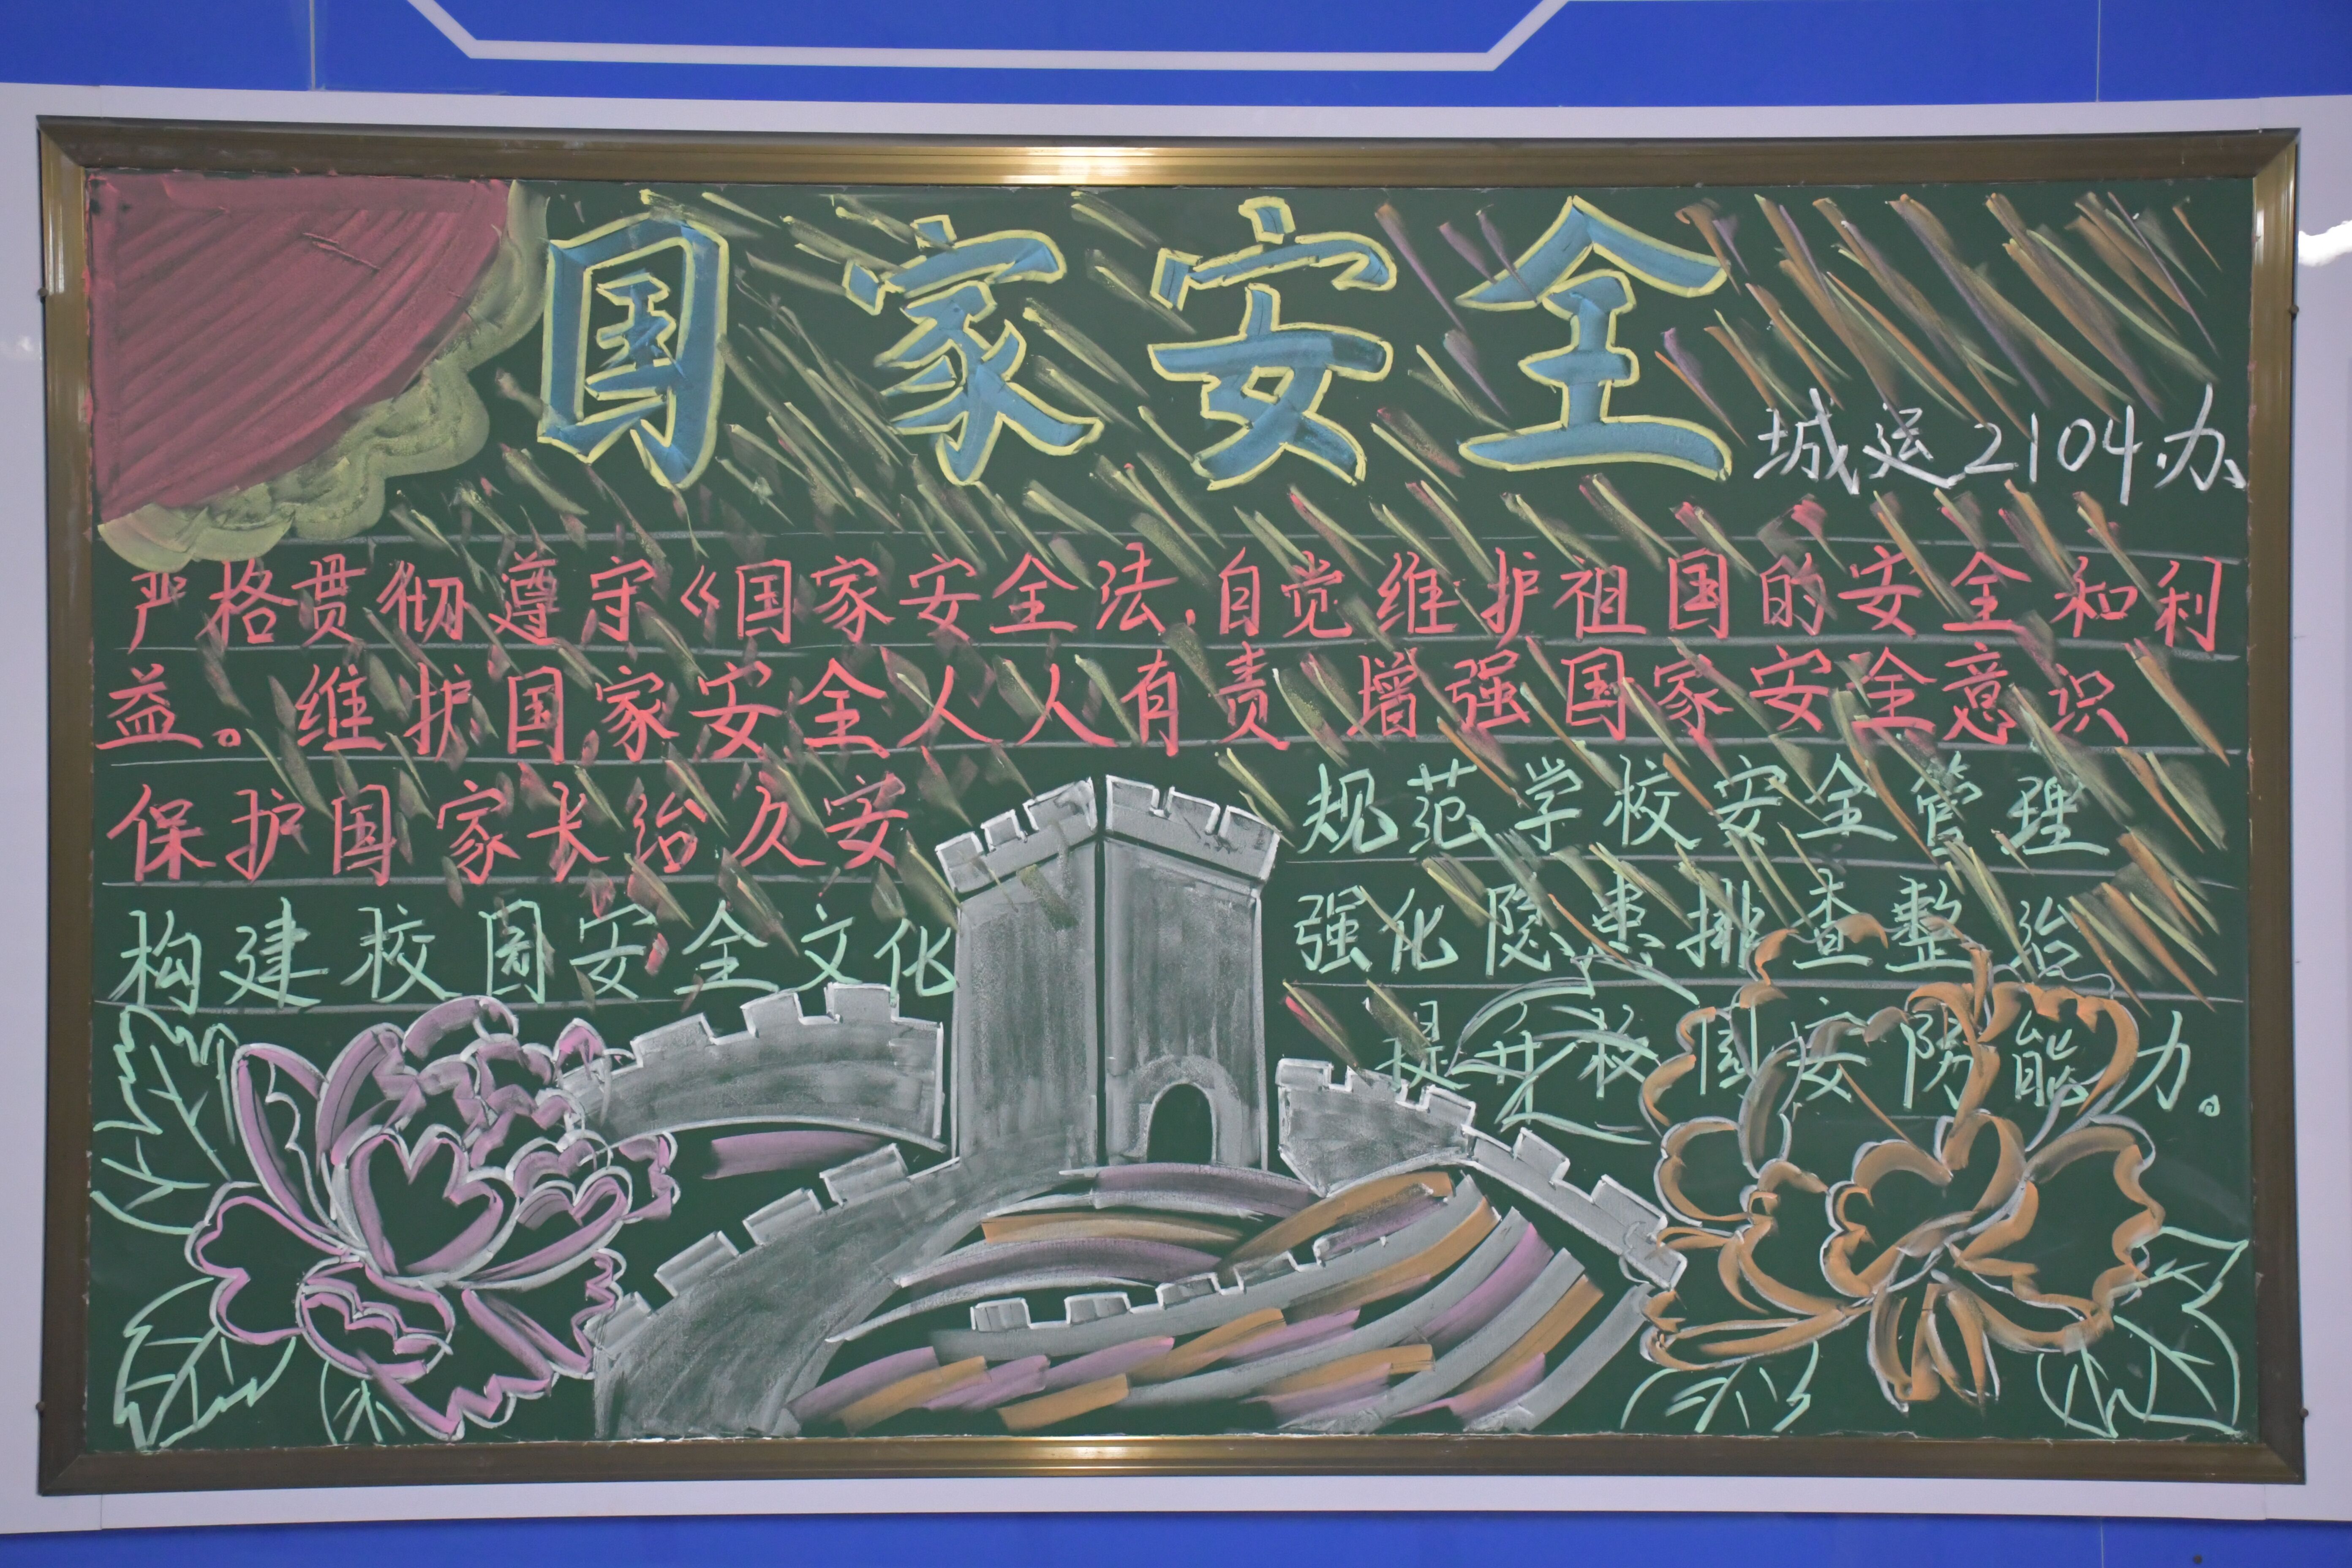 国家安全
城运2104办
严格贯彻遵守《国家安全法,自觉维护祖国的安全和利
益。维护国家安全人人有责 增强国家安全意识
保护国家长治久安
规范学校安全管理
构建校园安全文化
强化隐患排查整治
提升校园安防能力。